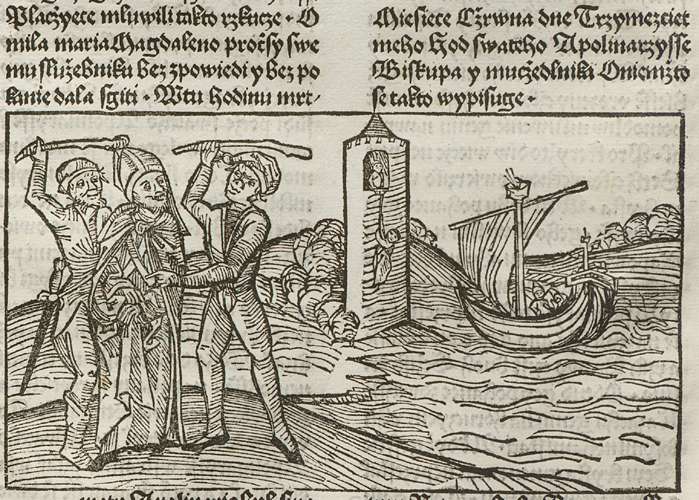 Placzyece mluwili takto rzkucze · O
mila maria Magdaleno proczsy swe
mu služebniku bez zpowiedi y bez po
kanie dala sgiti · Wtu hodinu mrt/
Miesiece Czrwna dne Trzymezciet
meho Hod swateho Apolinarzysse
Biskupa y muczedlnika Oniemžto
se takto wypisuge ·